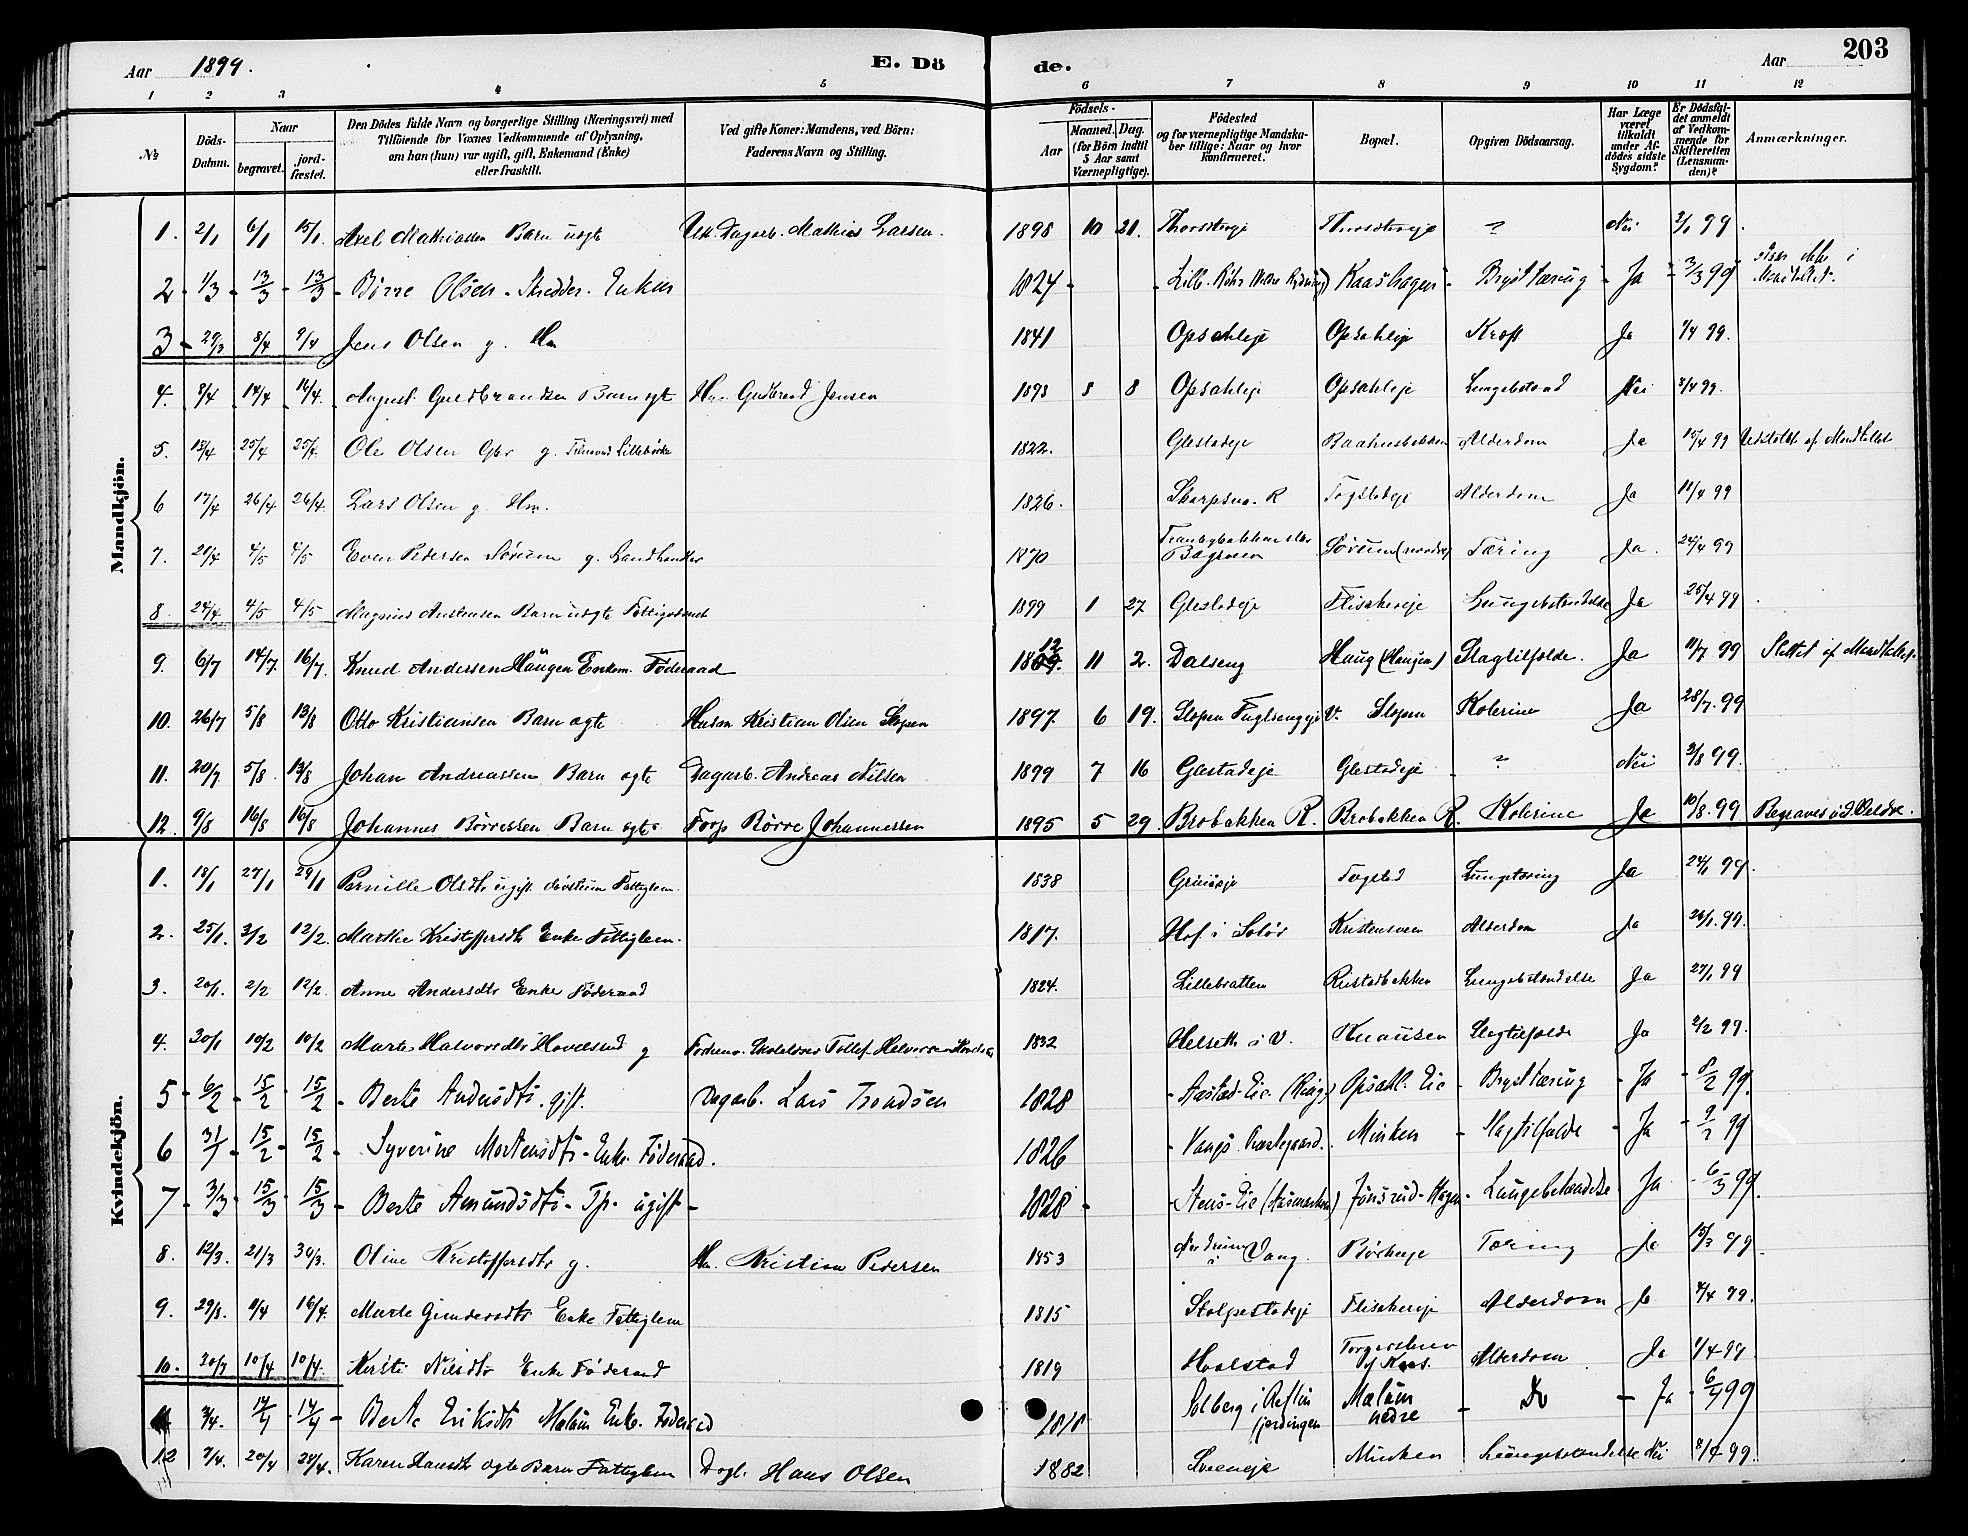 Aar 1899. E. Dö de. Aar 203
1 2 3 4 5 6 7 8 9 10 11 12
№ Döds-Datum. Naar begravet. jord-fæstet. Den Dödes fulde Navn og borgerlige Stilling (Næringsvei) med Tilföiende for Voxnes Vedkommende af Oplysning, om han (hun) var ugift, gift, Enkemand (Enke) eller fraskilt. Ved gifte Koner: Mandens, ved Börn: Faderens Navn og Stilling. Födsels- Aar Maaned. Dag. (for Börn indtil 5 Aar samt Værnepligtige). Födested og for værnepligtige Mandskaber tillige: Naar og hvor Konfirmeret. Bopæl. Opgiven Dödsaarsag. Har Læge været tilkaldt under Afdödes sidste Sygdom? Er Dödsfaldet anmeldt af Vedkommende for Skifteretten (Lensmanden)? Anmærkninger.
Mandkjön.
1. 2/1 6/1 15/1 Axel Mathiassen Barn uegte Dagarb. Mathias Larsen. 1898 10 21. Thorsterje Thorsterje ? Nei 2/1 99.
2 - 1/3 - 13/3 - 13/3 - Børre Olsen - Skredder. Enkm 1824 - Kaashagen - Brysttæring - Ja - 2/3 99
3 - 29/3 8/4 9/4 Jens Olsen g. Hm 1841 Opsahleje Opsahleje Kræft Ja 1/4 99.
4. 8/4 14/4 16/4. August Guldbrandsen Barn egt Hm. Gudbrand Jensen 1898 8 8 Opsahleje Opsahleje Lungebetænd Nei 8/4 99.
5. 13/4 25/4 25/4. Ole Olsen Gbr g. 1822. Glestadeje Baahusbakken Alderdom Ja 15/4 99 Udslettet af Mandtallet
6 17/4 26/4 26/4. Lars Olsen g. Hm. 1826. Skarpsno. R Fogstadeje Alderdom Ja 18/4 99
7. 20/4 4/5 4/5 Even Pedersen Sørum g. Landhandler 1870 Sørum (nordre) Tæring Ja. 24/4 99
8. 24/4 4/5 4/5 Magnus Barn uegte 1899 1 27 Glestadeje Flisakereje Lungebetændelse Ja 25/4 99
9. 6/7 14/7 16/7. Knud Andersen Haugen Enkem. Føderaad 1812 11 2. Dalseng Haug (Haugen) Slagtilfælde. Ja 11/7 99 Slettet af Mandtallet
10. 26/7 5/8 13/8 Otto Kristiansen Barn egte Husm Kristian Olsen Slopen 1897 6 19. Slopen Fuglsengeje V. Slopen Kolerine Ja 28/7. 99
11. 20/7 5/8. 13/8 Johan Andreassen Barn egte Dagarb. Andreas Nilsen 1899 7 16 Glestadeje Glestadeje ? Nei 2/8 99.
12. 9/8 16/8 16/8 Johannes Børresen Barn egte Forp Børre Johannessen 1895 5 29. Brobakken R. Brobakken R. Kolerine Ja 10/8. 99 Begraves ved Veldre.
Kvindekjön.
1. 18/1 27/1 29/1 Pernille Olsdtr ugift Fattiglem. 1838 Fogstad Lungetæring Ja 24/1 99.
2. 25/1. 3/2 12/2. Marthe Kristoffersdtr Enke Fattiglem. 1817. Hof i Solør Kristensveen Alderdom Ja 26/1. 99.
3. 20/1. 2/2 12/2. Anne Andersdtr Enke Føderaad 1824. Lillebratten Rustadbakken Lungebetændelse Ja 27/1 99
4. 30/1 10/2 10/2 Marte Halvorsdtr Hovelsrud g Tollef Halvorsen 1832 Helseth i V. Knausen Slagtilfælde Ja 2/2 99.
5 - 6/2 - 15/2 - 15/2 - Berte Andersdtr. gift. Dagarb. Lars Trondsen 1828 - Aastad-Eie (Ring) Opsahl. Eie - Brysttæring - Ja - 8/2 99.
6 31/1 - 15/2 - 15/2 - Syverine Mortensdtr - Enke. Føderaad. 1826 - Vangs Præstegaard. - Minken - Slagtilfælde - Ja - 9/2 99
7 - 3/3 - 15/3 - 15/3 - Berte Amundsdtr - Tp. ugift - 1828 - Stens-Eie Jønsrud-Hagen - Lungebetændelse Ja - 6/3 99.
8. 12/3. 21/3 30/3. Oline Kristoffersdtr g. Hm. Kristian Pedersen 1853 i Vang. Børkeeje Tæring Ja 15/3 99.
9. 29/3. 8/4 16/4. Marte Gundersdtr Enke Fattiglem 1815 Stolpestadeje Flisakereje Alderdom Ja 4/4 99.
10. 30/3 10/4 10/4. Kersti Nilsdtr Enke Føderaad 1819 Haalstad Alderdom Ja 1/4 99
11 3/4. 17/4 - 17/4 - Berte Eriksdtr Mælum Enke. Føderaad 1818 Solberg i Mælum nedre - Do - Ja - 6/4 99
12 7/4. 20/4 20/4. Karen Hansdtr egte Barn Fattiglem Dagl. Hans Olsen 1882 Sveeneje Minken Lungebetændelse Nei 8/4 99.